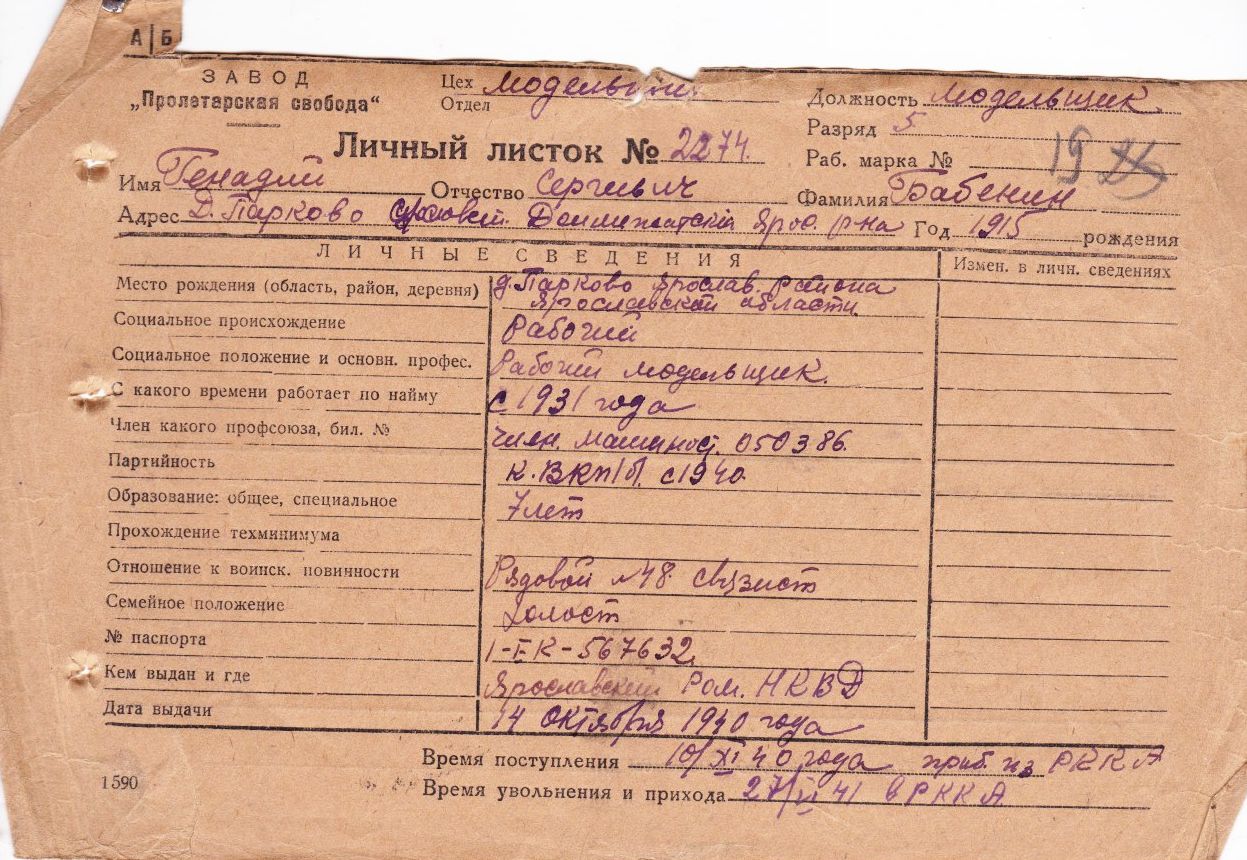 А|Б
ЗАВОД
„Пролетарская свобода“
Цех
Отдел Модельный
Должность Модельщик.
Разряд 5
Личный листок № 2274.
Раб. марка № 19
Имя Генадий Отчество Сергиевич Фамилия Бабенин
Адрес Д. Парково Яросл. р-на Год 1915 рождения
ЛИЧНЫЕ СВЕДЕНИЯ Измен. в личн. сведениях
Место рождения (область, район, деревня) д. Парково Ярослав. района
Ярославской области.
Социальное происхождение Рабочий
Социальное положение и основн. профес. Рабочий модельщик.
С какого времени работает по найму с 1931 года
Член какого профсоюза, бил. № член. машиност. 050386.
Партийность к. ВКП/б/. с 1940.
Образование: общее, специальное 7 лет
Прохождение техминимума
Отношение к воинск. повинности Рядовой №48 связист
Семейное положение Холост
№ паспорта I-ЕК-567632.
Кем выдан и где Ярославский Ром. НКВД
Дата выдачи 14 октября 1940 года
Время поступления 10/XI 40 года приб. из РККА
1590
Время увольнения и прихода 27/VI 41 в РККА